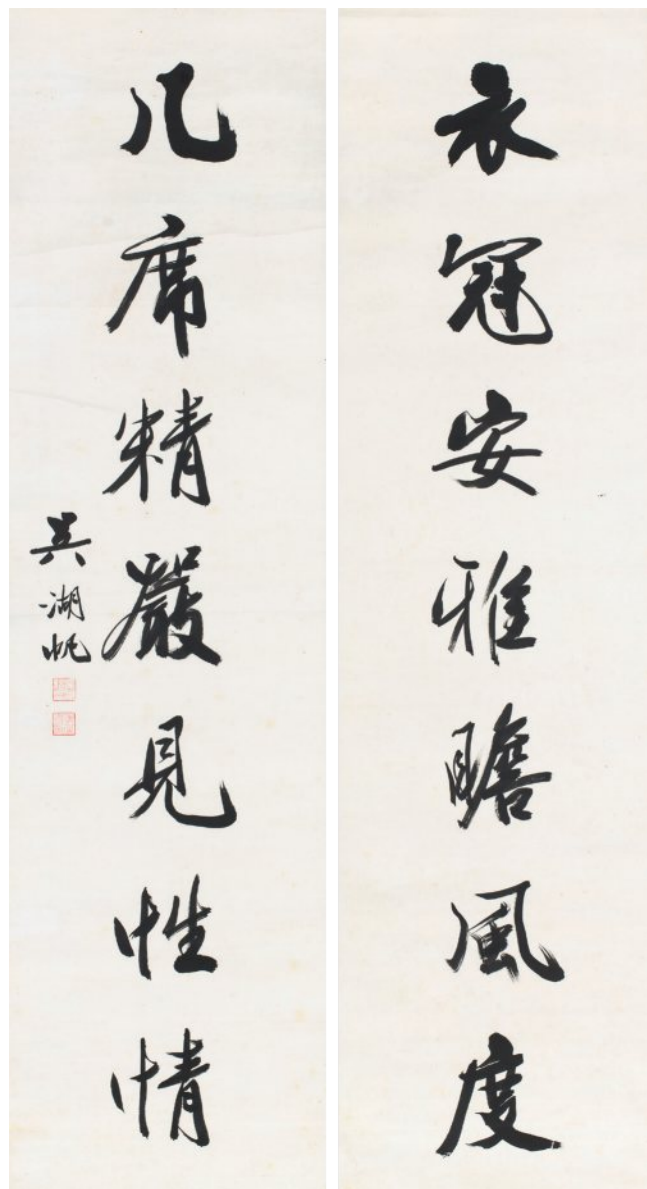 衣冠安雅瞻風度
几席精嚴見性情
吴湖帆